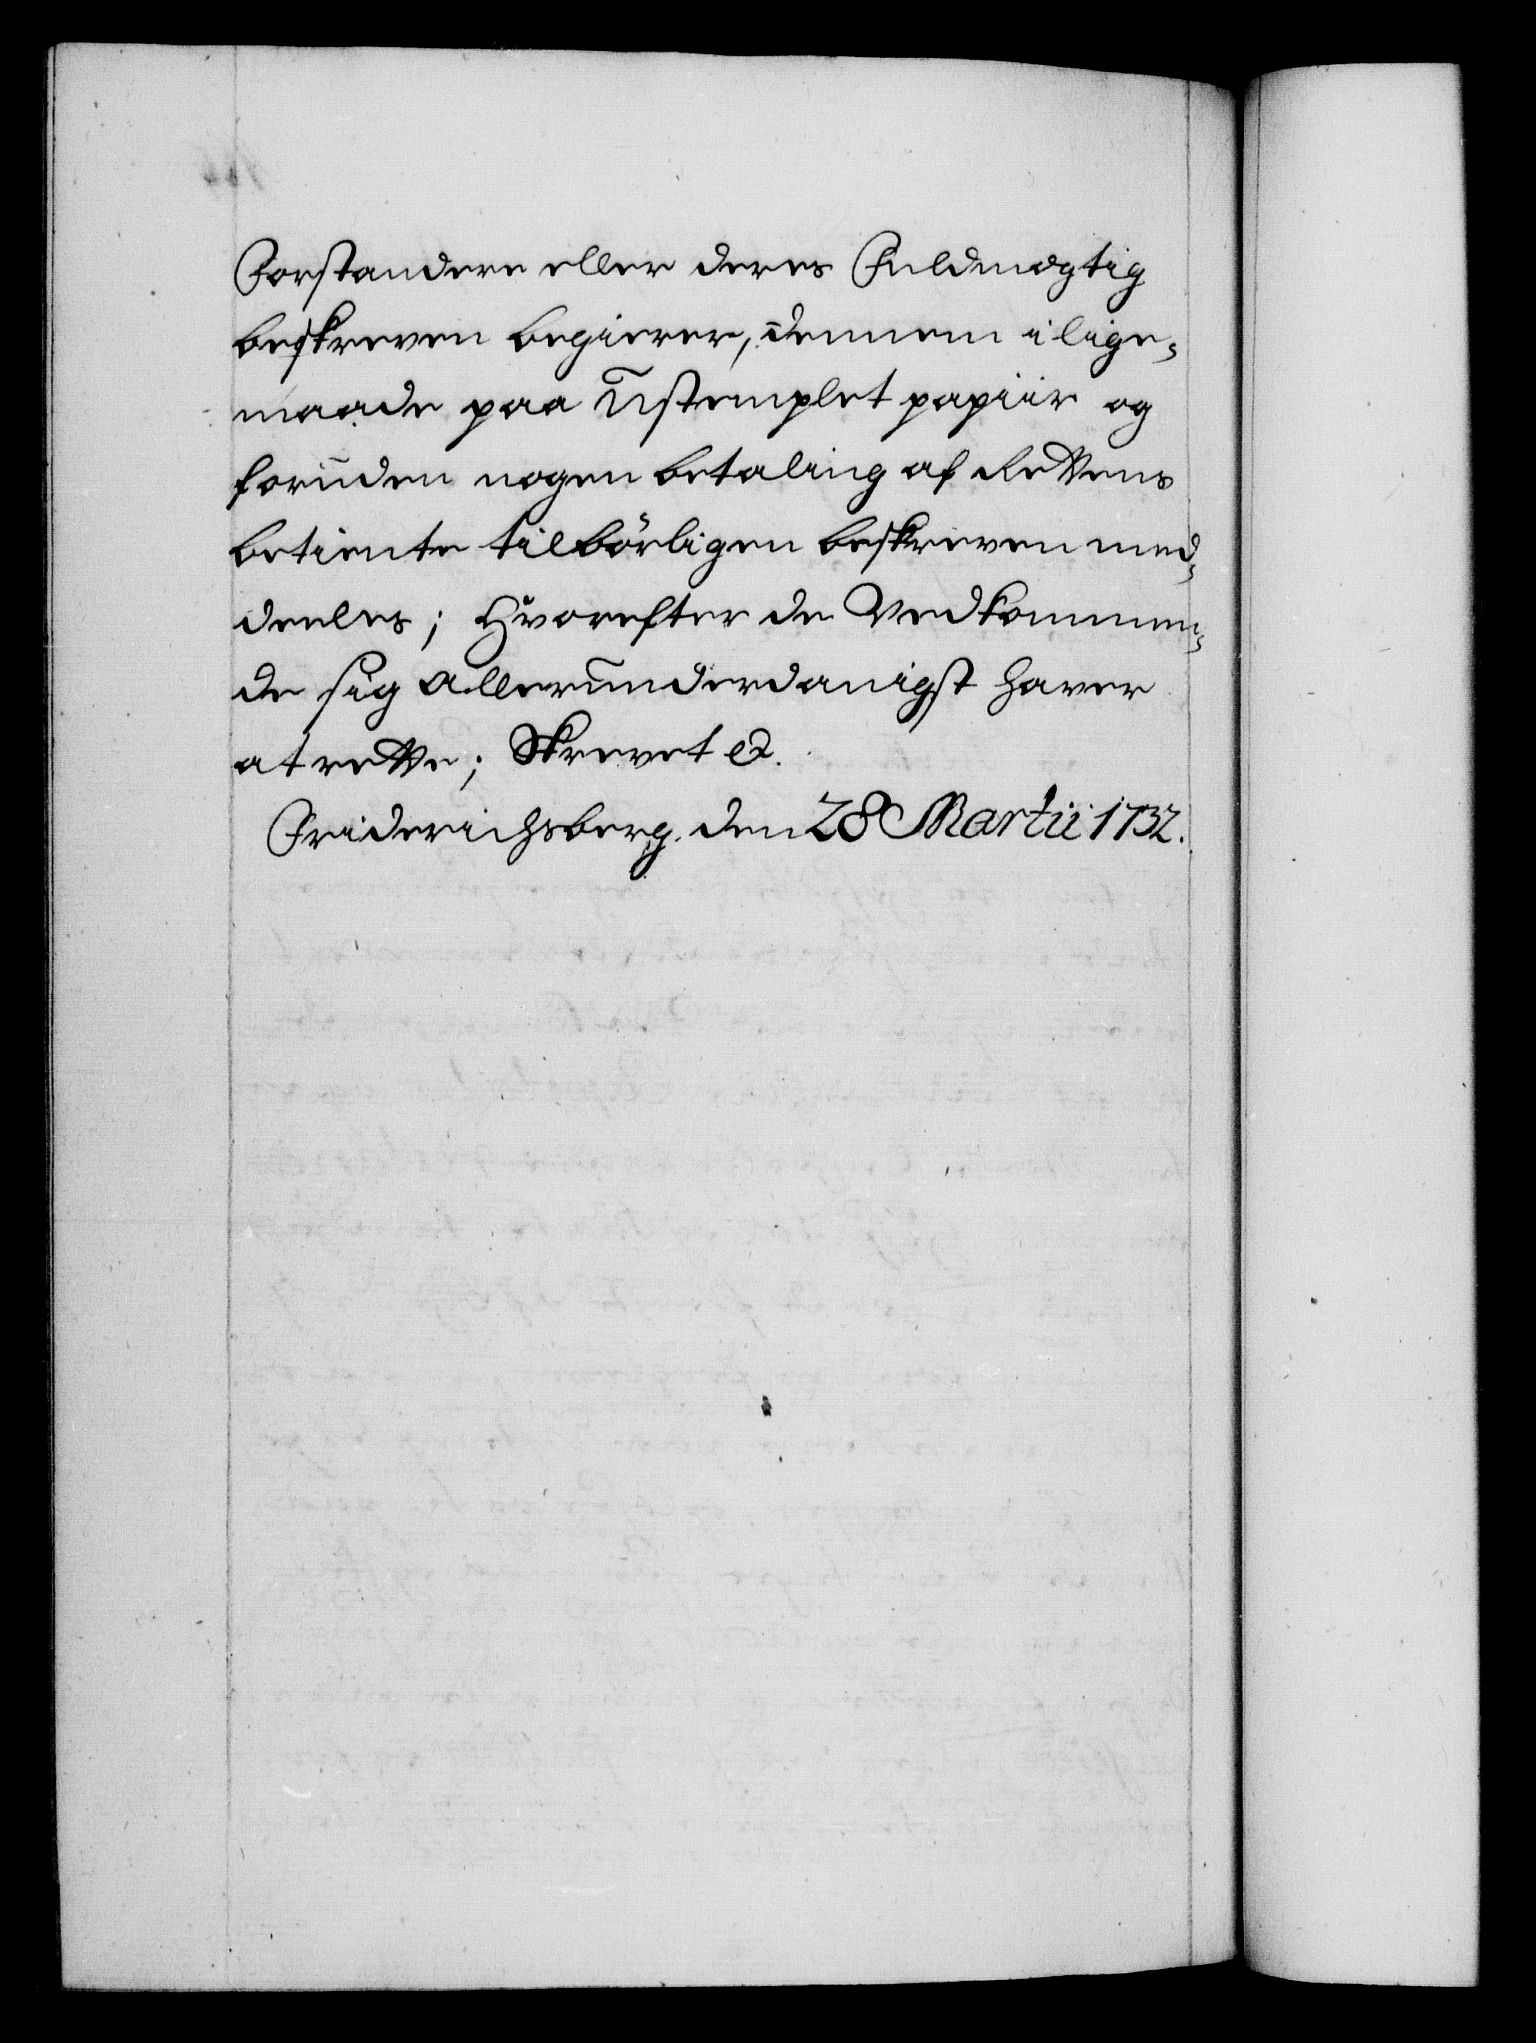 Forstandere eller deres Fuldmægtig
beskreven begierer, dennem i lige-
maade paa Ustemplet papiir og
foruden nogen betaling af Rettens
betiente tilbörligen beskreven med-
deeles; Hvorefter de Vedkommen-
de sig allerunderdanigst haver
at rette; Skrevet etc.
Friderichsberg den 28 Martii 1732.